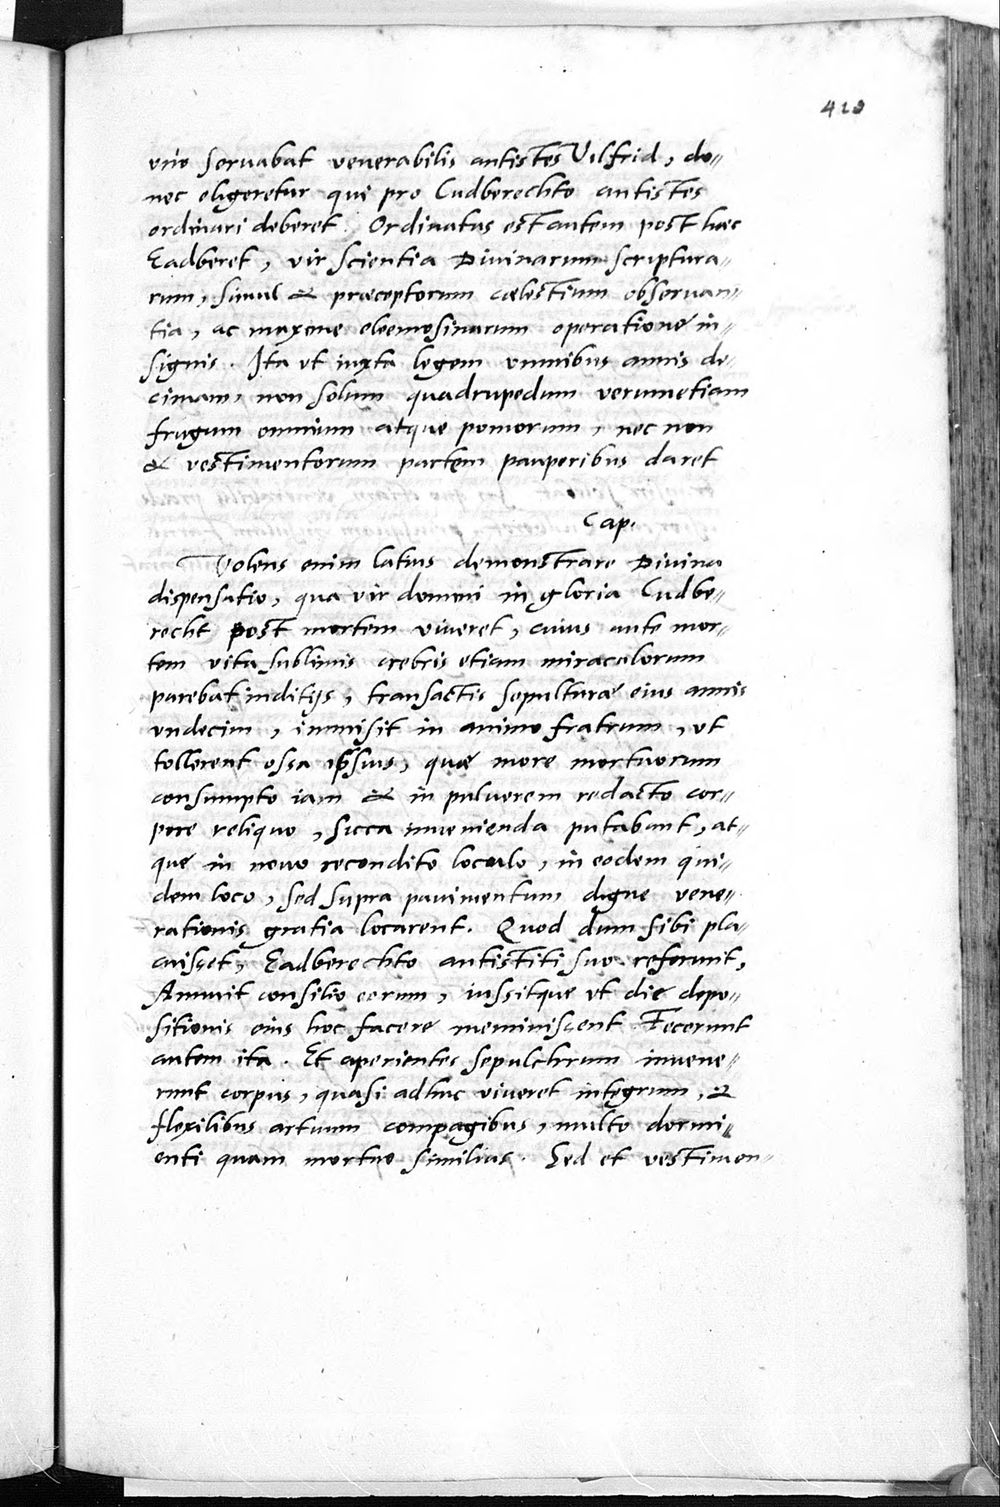 420
uno servabat venerabilis antistes Vilfrid, do-
nec eligeretur qui pro Cudberechto antistes
ordinari deberet. Ordinatus est autem post hæc
Eadberet, vir scientia Divinarum scriptura-
rum, simul & præceptorum cælestium observan-
tia, ac maxime eleemosinarum operatione in-
signis. Ita ut iuxta legem omnibus annis de-
cimam, non solum quadrupedum verumetiam
frugum omnium atque pomorum, nec non
& vestimentorum partem pauperibus daret
Cap.
Volens enim latius demonstrare Divina
dispensatio, qua vir domini in gloria Cudbe-
recht post mortem viveret, cuius ante mor-
tem vita sublimis crebris etiam miraculorum
parebat inditijs, transactis sepulturæ eius annis
undecim, immisit in animo fratrum, ut
tollerent ossa ipsius, quæ more mortuorum
consumpto iam & in pulverem redacto cor-
pore reliquo, sicca invenienda putabant, at-
que in novo recondito loculo, in eodem qui-
dem loco, sed supra pavimentum digne vene-
rationis gratia locarent. Quod dum sibi pla-
cuisset, Eadberechto antistiti suo referunt,
Annuit consilio eorum, iussitque ut die depo-
sitionis eius hoc facere meminissent Fecerunt
autem ita. Et aperientes sepulchrum invene-
runt corpus, quasi adhuc viveret integrum, &
flexilibus artuum compagibus, multo dormi-
enti quam mortuo similius. Sed et vestimen-